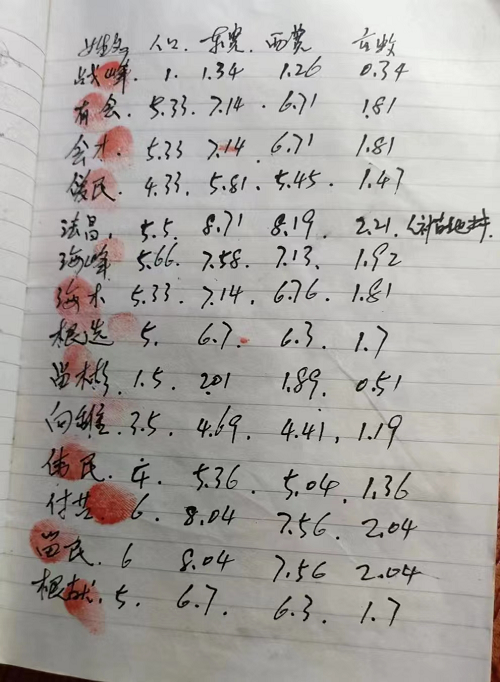 姓名 人口 东荒 西荒 亩数
战峰. 1. 1.34 1.26 0.34
有会. 5.33. 7.14. 6.71 1.81
会才. 5.33 7.14. 6.71 1.81
俊民. 4.33. 5.81. 5.45. 1.47
法昌. 5.5. 8.71 8.19. 2.21.
海峰 5.66. 7.58. 7.13. 1.92
海木. 5.33. 7.14. 6.76. 1.81
根选 5. 6.7. 6.3. 1.7
苗彬. 1.5. 2.01 1.89. 0.51
向雅. 3.5. 4.69. 4.41. 1.19
伟民. 4. 5.36. 5.04. 1.36
付共 6. 8.04 7.56. 2.04
苗民. 6 8.04 7.56 2.04
根 5. 6.7. 6.3. 1.7